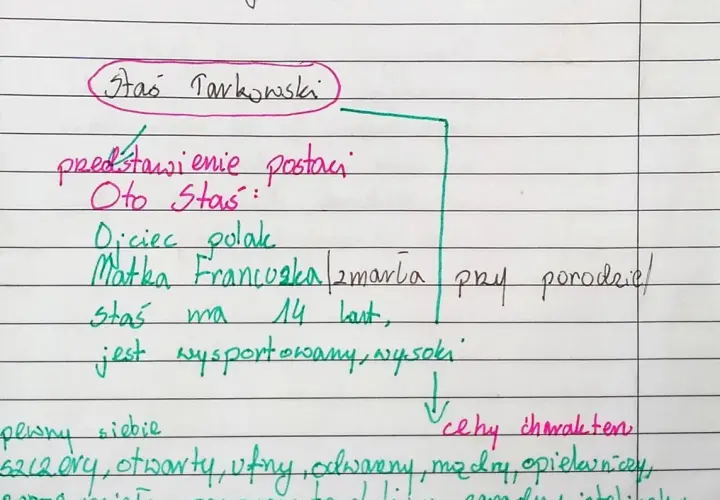 Staś Tarkowski
przedstawienie postaci
Oto Staś:
Ojciec polak
Matka Francuzka /zmarła przy porodzie/
Staś ma 14 lat,
jest wysportowany, wysoki
pewny siebie
cehy charakteru
szczery, otwarty, ufny, odważny, mądry, opiekuńczy,